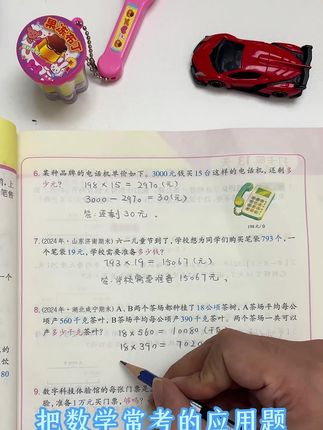 果冻布丁
6. 某种品牌的电话机单价如下。3000元钱买15台这样的电话机，还剩多
少元？
198×15=2970(元)
3000-2970=30(元)
答:还剩30元。
198元/台
7. (2024年·山东济南期末)六一儿童节到了，学校想为同学们购买笔袋793个，一
个笔袋19元，学校需要准备多少钱？
793×19=15067(元)
答:学校需要准备15067元。
8. (2024年·湖北咸宁期末)A、B两个茶场都种植了18公顷茶树，A茶场平均每公
顷产560千克茶叶，B茶场平均每公顷产390千克茶叶。两个茶场一共可以
产多少千克茶叶？
18×560=10080(千
18×390=7020
9. 数学科技体验馆的每张门票是
，准备1万元买门票，够吗？
把数学常考的应用题